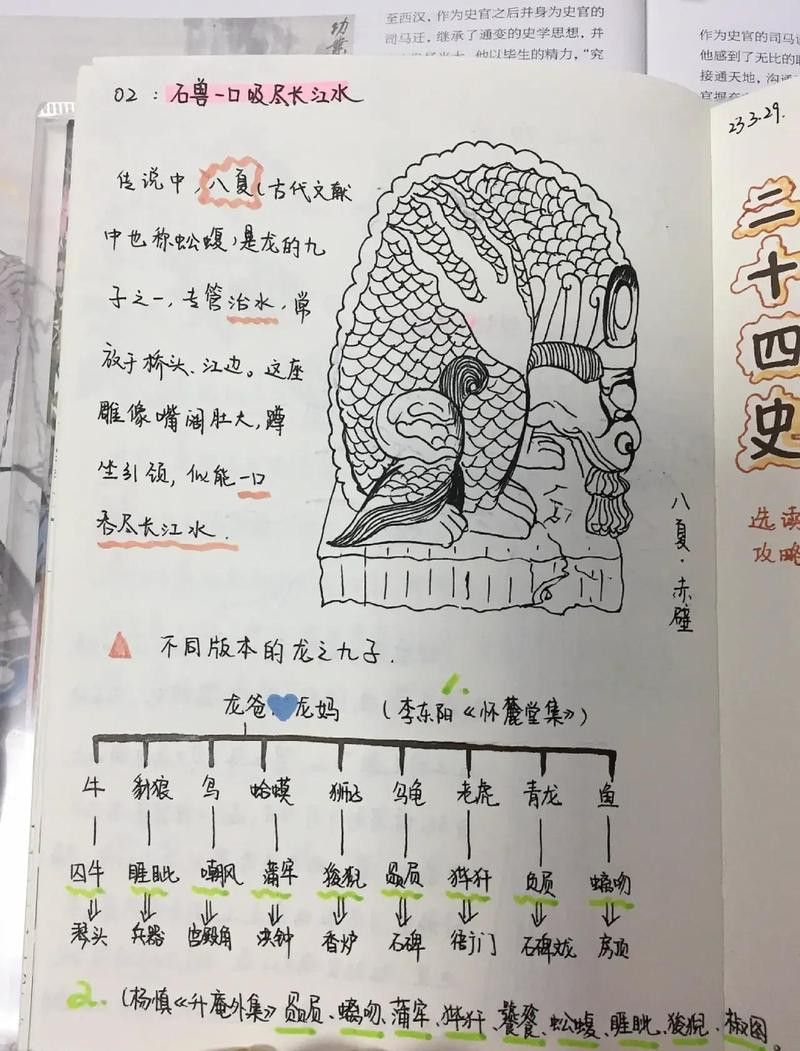 至西汉，作为史官之后并身为史官的
司马迁，继承了通变的史学思想，并
他以毕生的精力，“究
作为史官的司马
他感到了无比的
接通天地，沟通
23.3.29.
二十四史
选读
攻略
02：石兽一口吸尽长江水
传说中，八夏（古代文献
中也称蚣蝮）是龙的九
子之一，专管治水，常
放于桥头、江边。这座
雕像嘴阔肚大，蹲
坐引颈，似能一口
吞尽长江水．
八夏·赤壁
不同版本的龙之九子．
1.
龙爸 龙妈 （李东阳《怀麓堂集》）
牛 豺狼 鸟 蛤蟆 狮子 乌龟 老虎 青龙 鱼
囚牛 睚眦 嘲风 蒲牢 狻猊 赑屃 狴犴 负屃 螭吻
琴头 兵器 宫殿角 洪钟 香炉 石碑 衙门 石碑文龙 房顶
2. （杨慎《升庵外集》赑屃、螭吻、蒲牢、狴犴、饕餮、蚣蝮、睚眦、狻猊、椒图。